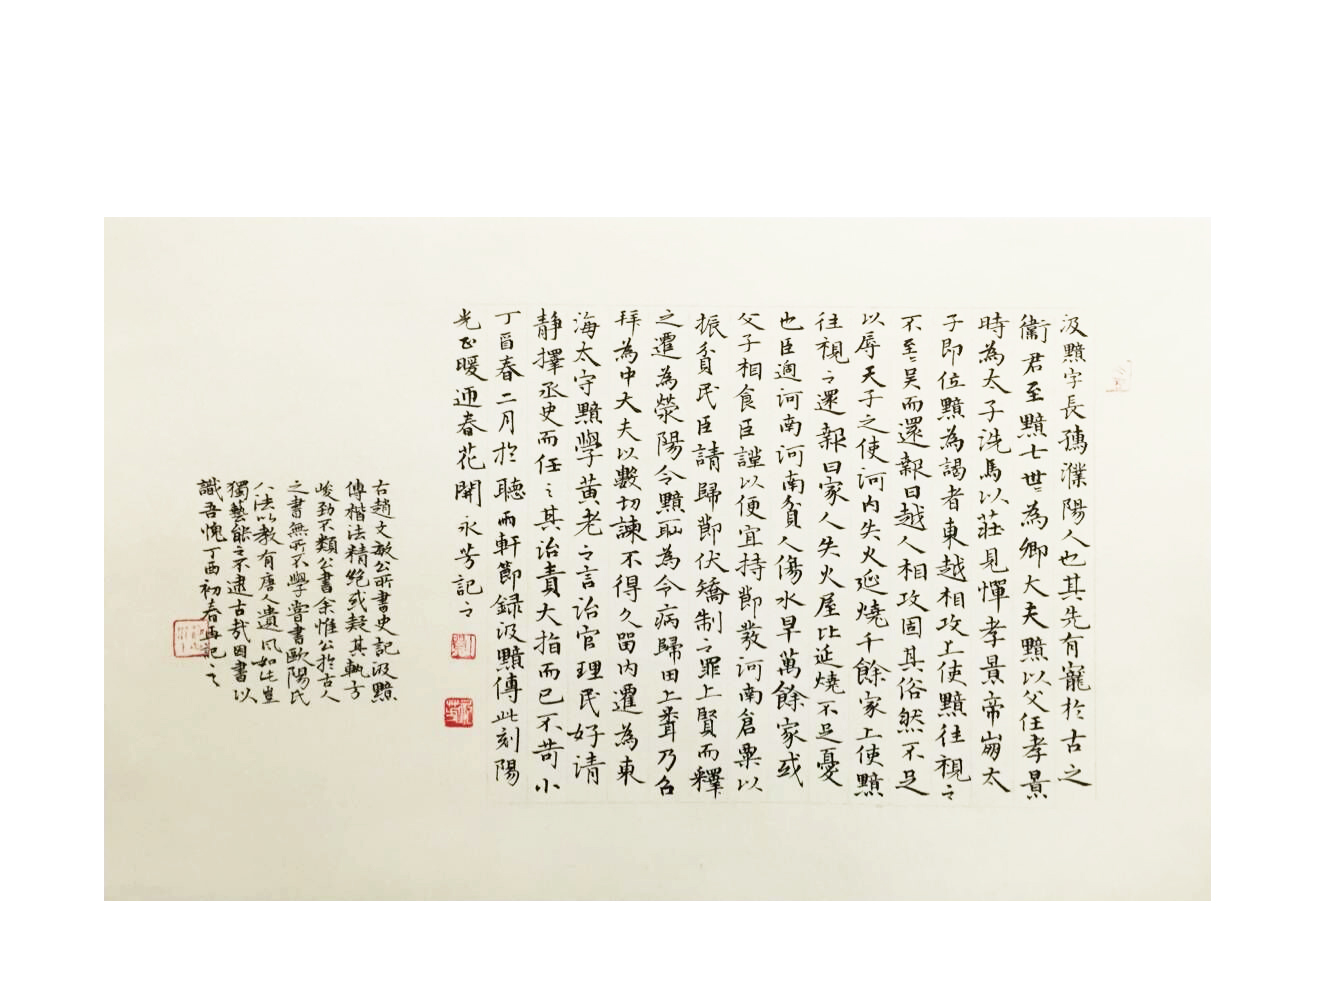 汲黯字長孺濮陽人也其先有寵於古之
衛君至黯七世〻為卿大夫黯以父任孝景
時為太子洗馬以莊見憚孝景帝崩太
子即位黯為謁者東越相攻上使黯往視之
不至〻吴而還報曰越人相攻固其俗然不足
以辱天子之使河内失火延燒千餘家上使黯
往視之還報曰家人失火屋比延燒不足憂
也臣過河南河南貧人傷水旱萬餘家或
父子相食臣謹以便宜持節發河南倉粟以
振貧民臣請歸節伏矯制之罪上賢而釋
之遷為滎陽令黯恥為令病歸田上聞乃召
拜為中大夫以數切諫不得久留内遷為東
海太守黯學黄老之言治官理民好清
靜擇丞史而任之其治責大指而已不苛小
丁酉春二月於聽雨軒節録汲黯傳此刻陽
光正暖迎春花開永芳記之
右趙文敏公所書史記汲黯
傳楷法精絶或疑其軌方
峻勁不類公書余惟公於古人
之書無所不學嘗書歐陽氏
八法以教有唐人遺風如此豈
獨藝能之不逮古哉因書以
識吾愧丁酉初春再記之